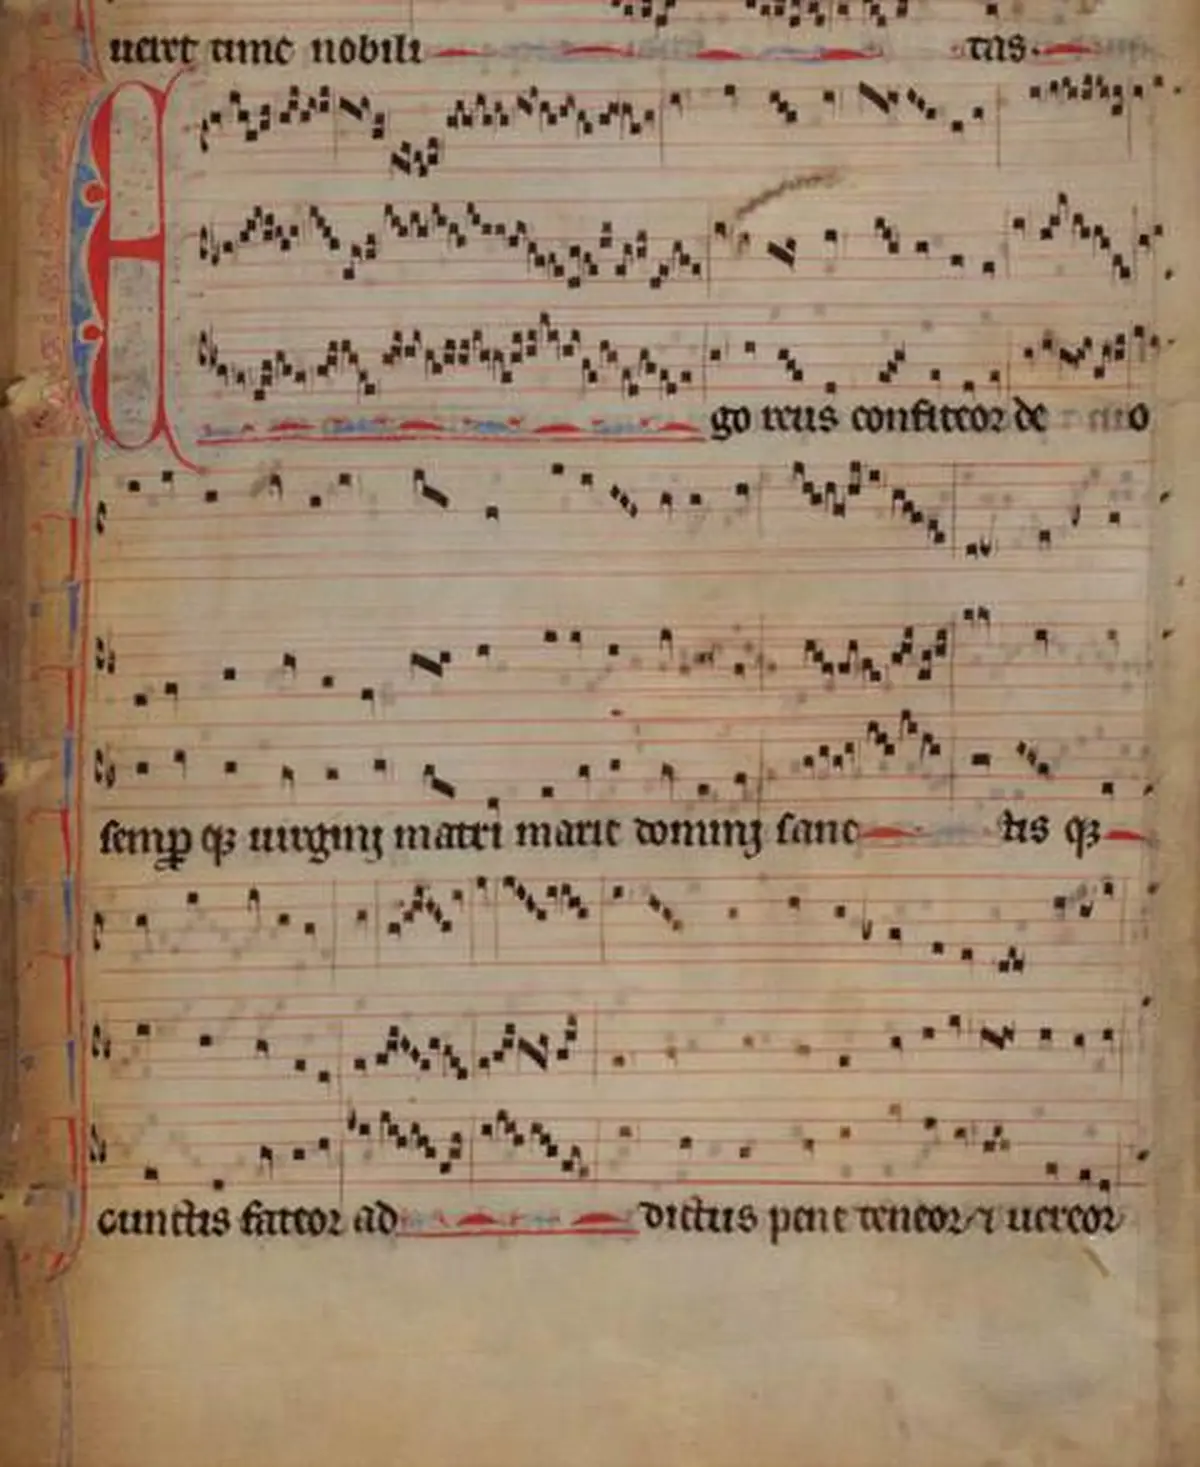 uert tunc nobili tas.
Ego reus confiteor deo
semꝑ qꝫ uirginj matri marie dominj sanc tis qꝫ
cunctis fateor ad dictus pene teneor ⁊ uereor